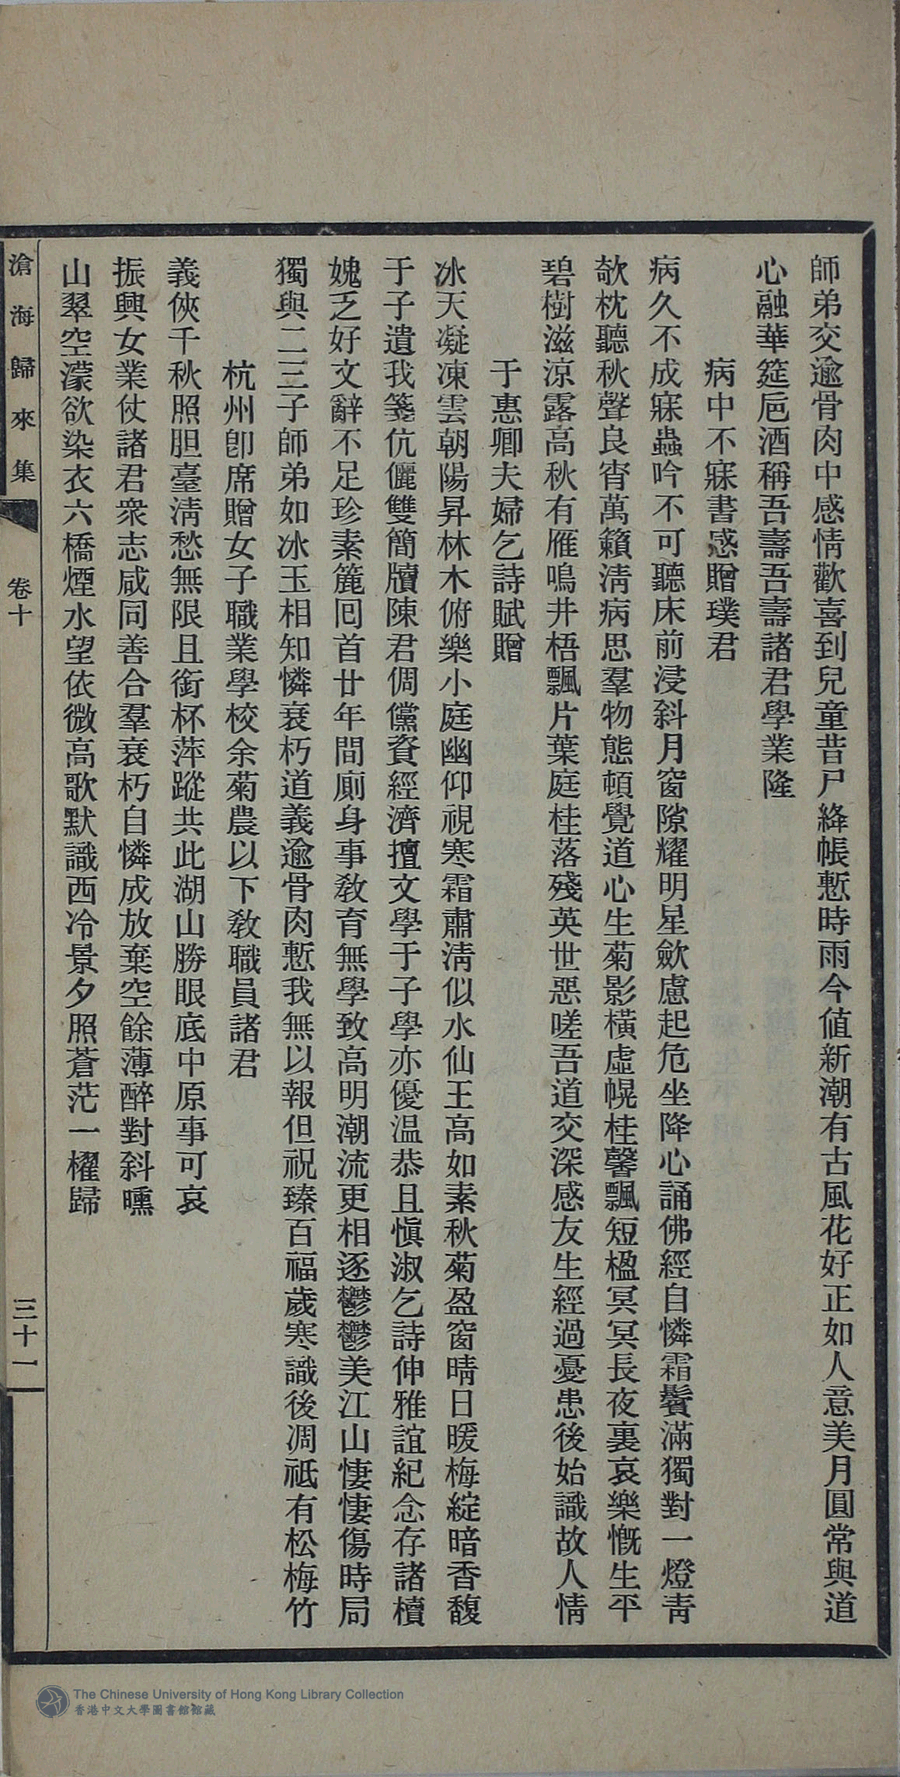 師弟交逾骨肉中感情歡喜到兒童昔尸絳帳慙時雨今値新潮有古風花好正如人意美月圓常與道
心融華筵巵酒稱吾壽吾壽諸君學業隆
病中不寐書感贈璞君
病久不成寐蟲吟不可聽床前浸斜月窗隙耀明星歛慮起危坐降心誦佛經自憐霜鬢滿獨對一燈靑
欹枕聽秋聲良宵萬籟淸病思羣物態頓覺道心生菊影橫虛幌桂馨飄短楹冥冥長夜裏哀樂慨生平
碧樹滋涼露高秋有雁鳴井梧飄片葉庭桂落殘英世惡嗟吾道交深感友生經過憂患後始識故人情
于惠卿夫婦乞詩賦贈
冰天凝凍雲朝陽昇林木俯樂小庭幽仰視寒霜肅淸似水仙王高如素秋菊盈窗晴日暖梅綻暗香馥
于子遺我箋伉儷雙簡牘陳君倜儻資經濟擅文學于子學亦優温恭且愼淑乞詩伸雅誼紀念存諸櫝
媿乏好文辭不足珍素簏囘首廿年間廁身事敎育無學致高明潮流更相逐鬱鬱美江山悽悽傷時局
獨與二三子師弟如冰玉相知憐衰朽道義逾骨肉慙我無以報但祝臻百福歲寒識後凋祗有松梅竹
杭州卽席贈女子職業學校余菊農以下敎職員諸君
義俠千秋照胆臺淸愁無限且銜杯萍蹤共此湖山勝眼底中原事可哀
振興女業仗諸君衆志咸同善合羣衰朽自憐成放棄空餘薄醉對斜曛
山翠空濛欲染衣六橋煙水望依微高歌默識西泠景夕照蒼茫一櫂歸
滄海歸來集
卷十
三十一
The Chinese University of Hong Kong Library Collection
香港中文大學圖書館館藏